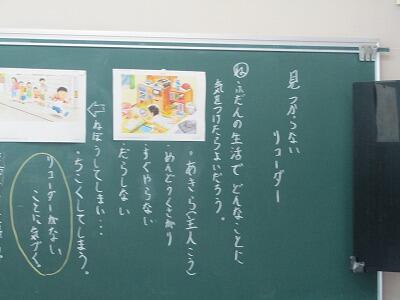 見つからない
リコーダー
ふだんの生活で どんなことに
気をつけたらよいだろう。
・あきら(主人こう)
・めんどうくさがり
・すぐやらない
・だらしない
ねぼうしてしまい…
・ちこくしてしまう。
リコーダーがない
ことに気づく。